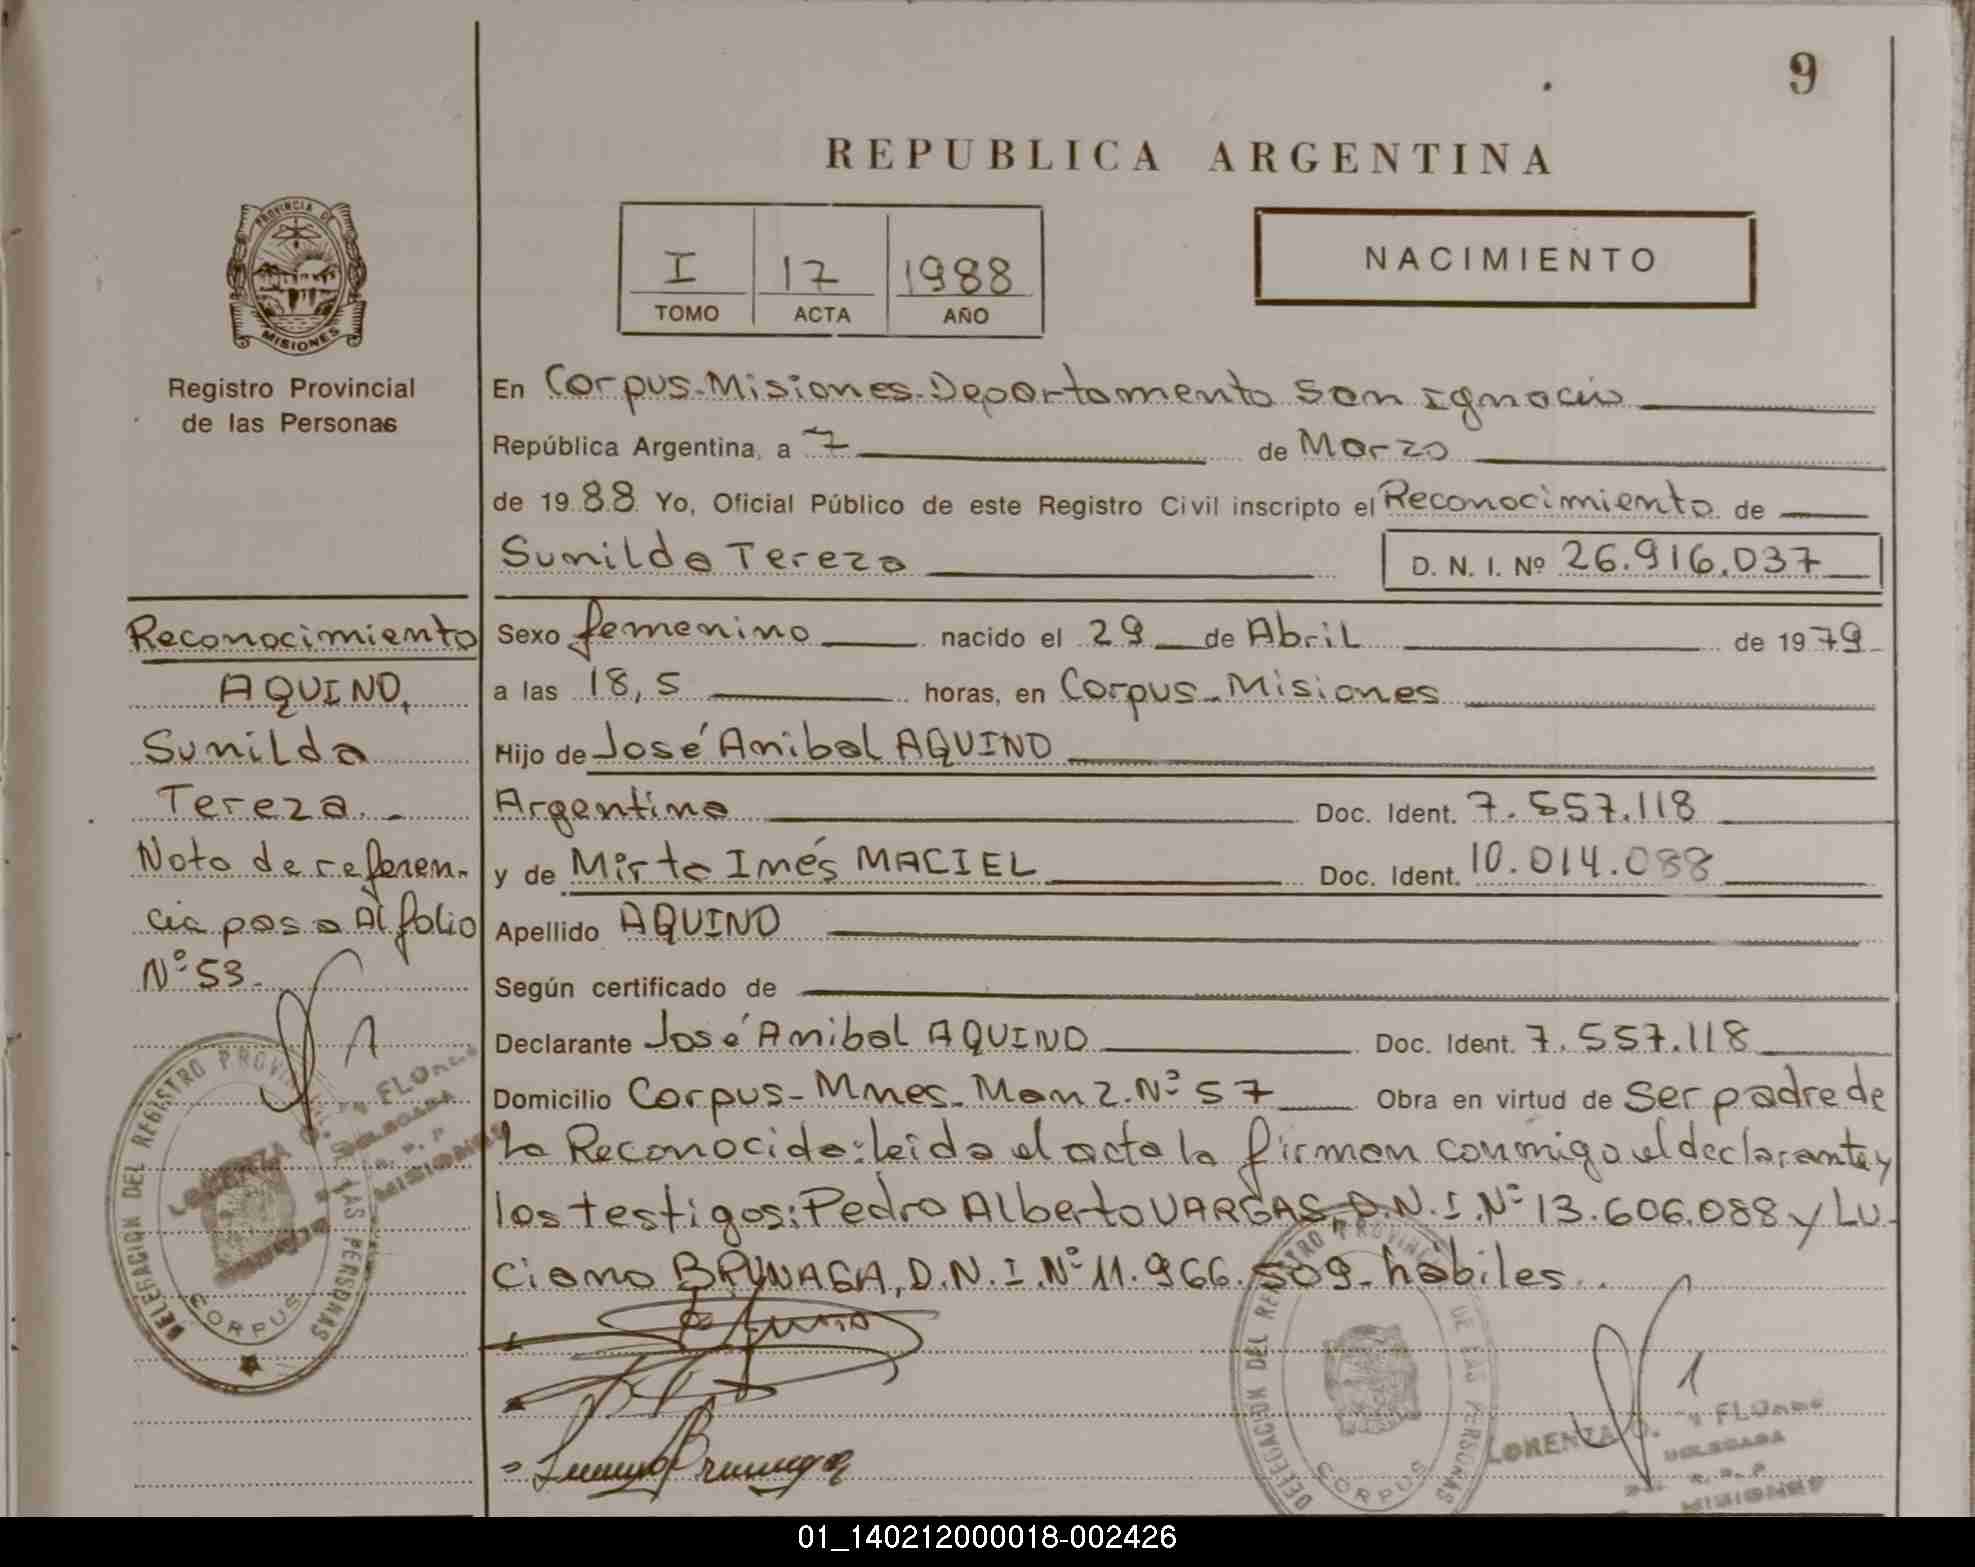 9
REPUBLICA ARGENTINA
PROVINCIA DE
MISIONES
Registro Provincial
de las Personas
I 17 1988
TOMO ACTA AÑO
NACIMIENTO
En Corpus-Misiones-Departamento San Ignacio
República Argentina, a 7 de Marzo
de 1988 Yo, Oficial Público de este Registro Civil inscripto el Reconocimiento de
Sunilda Tereza D. N. I. Nº 26.916.037
Reconocimiento
AQUINO,
Sunilda
Tereza.-
Nota de referen-
cia pasa Al folio
Nº 53.-
Sexo femenino nacido el 29 de Abril de 1979
a las 18,5 horas, en Corpus-Misiones
Hijo de José Anibal AQUINO
Argentino Doc. Ident. 7.557.118
y de Mirta Inés MACIEL Doc. Ident. 10.014.088
Apellido AQUINO
Según certificado de
Declarante José Anibal AQUINO Doc. Ident. 7.557.118
Domicilio Corpus-Mnes-Manz.Nº 57 Obra en virtud de ser padre de
la Reconocida:leida el acta la firman conmigo el declarante y
los testigos:Pedro Alberto VARGAS, D.N.I.Nº 13.606.088 y Lu-
ciano BRUNAGA, D.N.I.Nº 11.966.509-hábiles..
DELEGACION DEL REGISTRO PROVINCIAL DE LAS PERSONAS
CORPUS
DELEGACION DEL REGISTRO PROVINCIAL DE LAS PERSONAS
CORPUS
LORENZA
DELEGADA
MISIONES
01_140212000018-002426